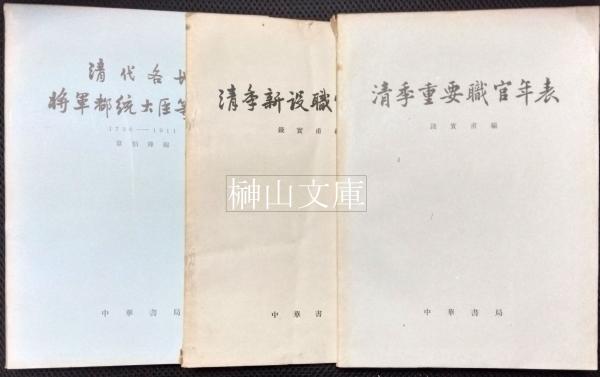 清代各地
將軍都統大臣等
1796——1911
章伯鋒編
中華書局
清季新设職官
錢實甫編
中華書
清季重要職官年表
錢實甫編
中華書局
榊山文庫